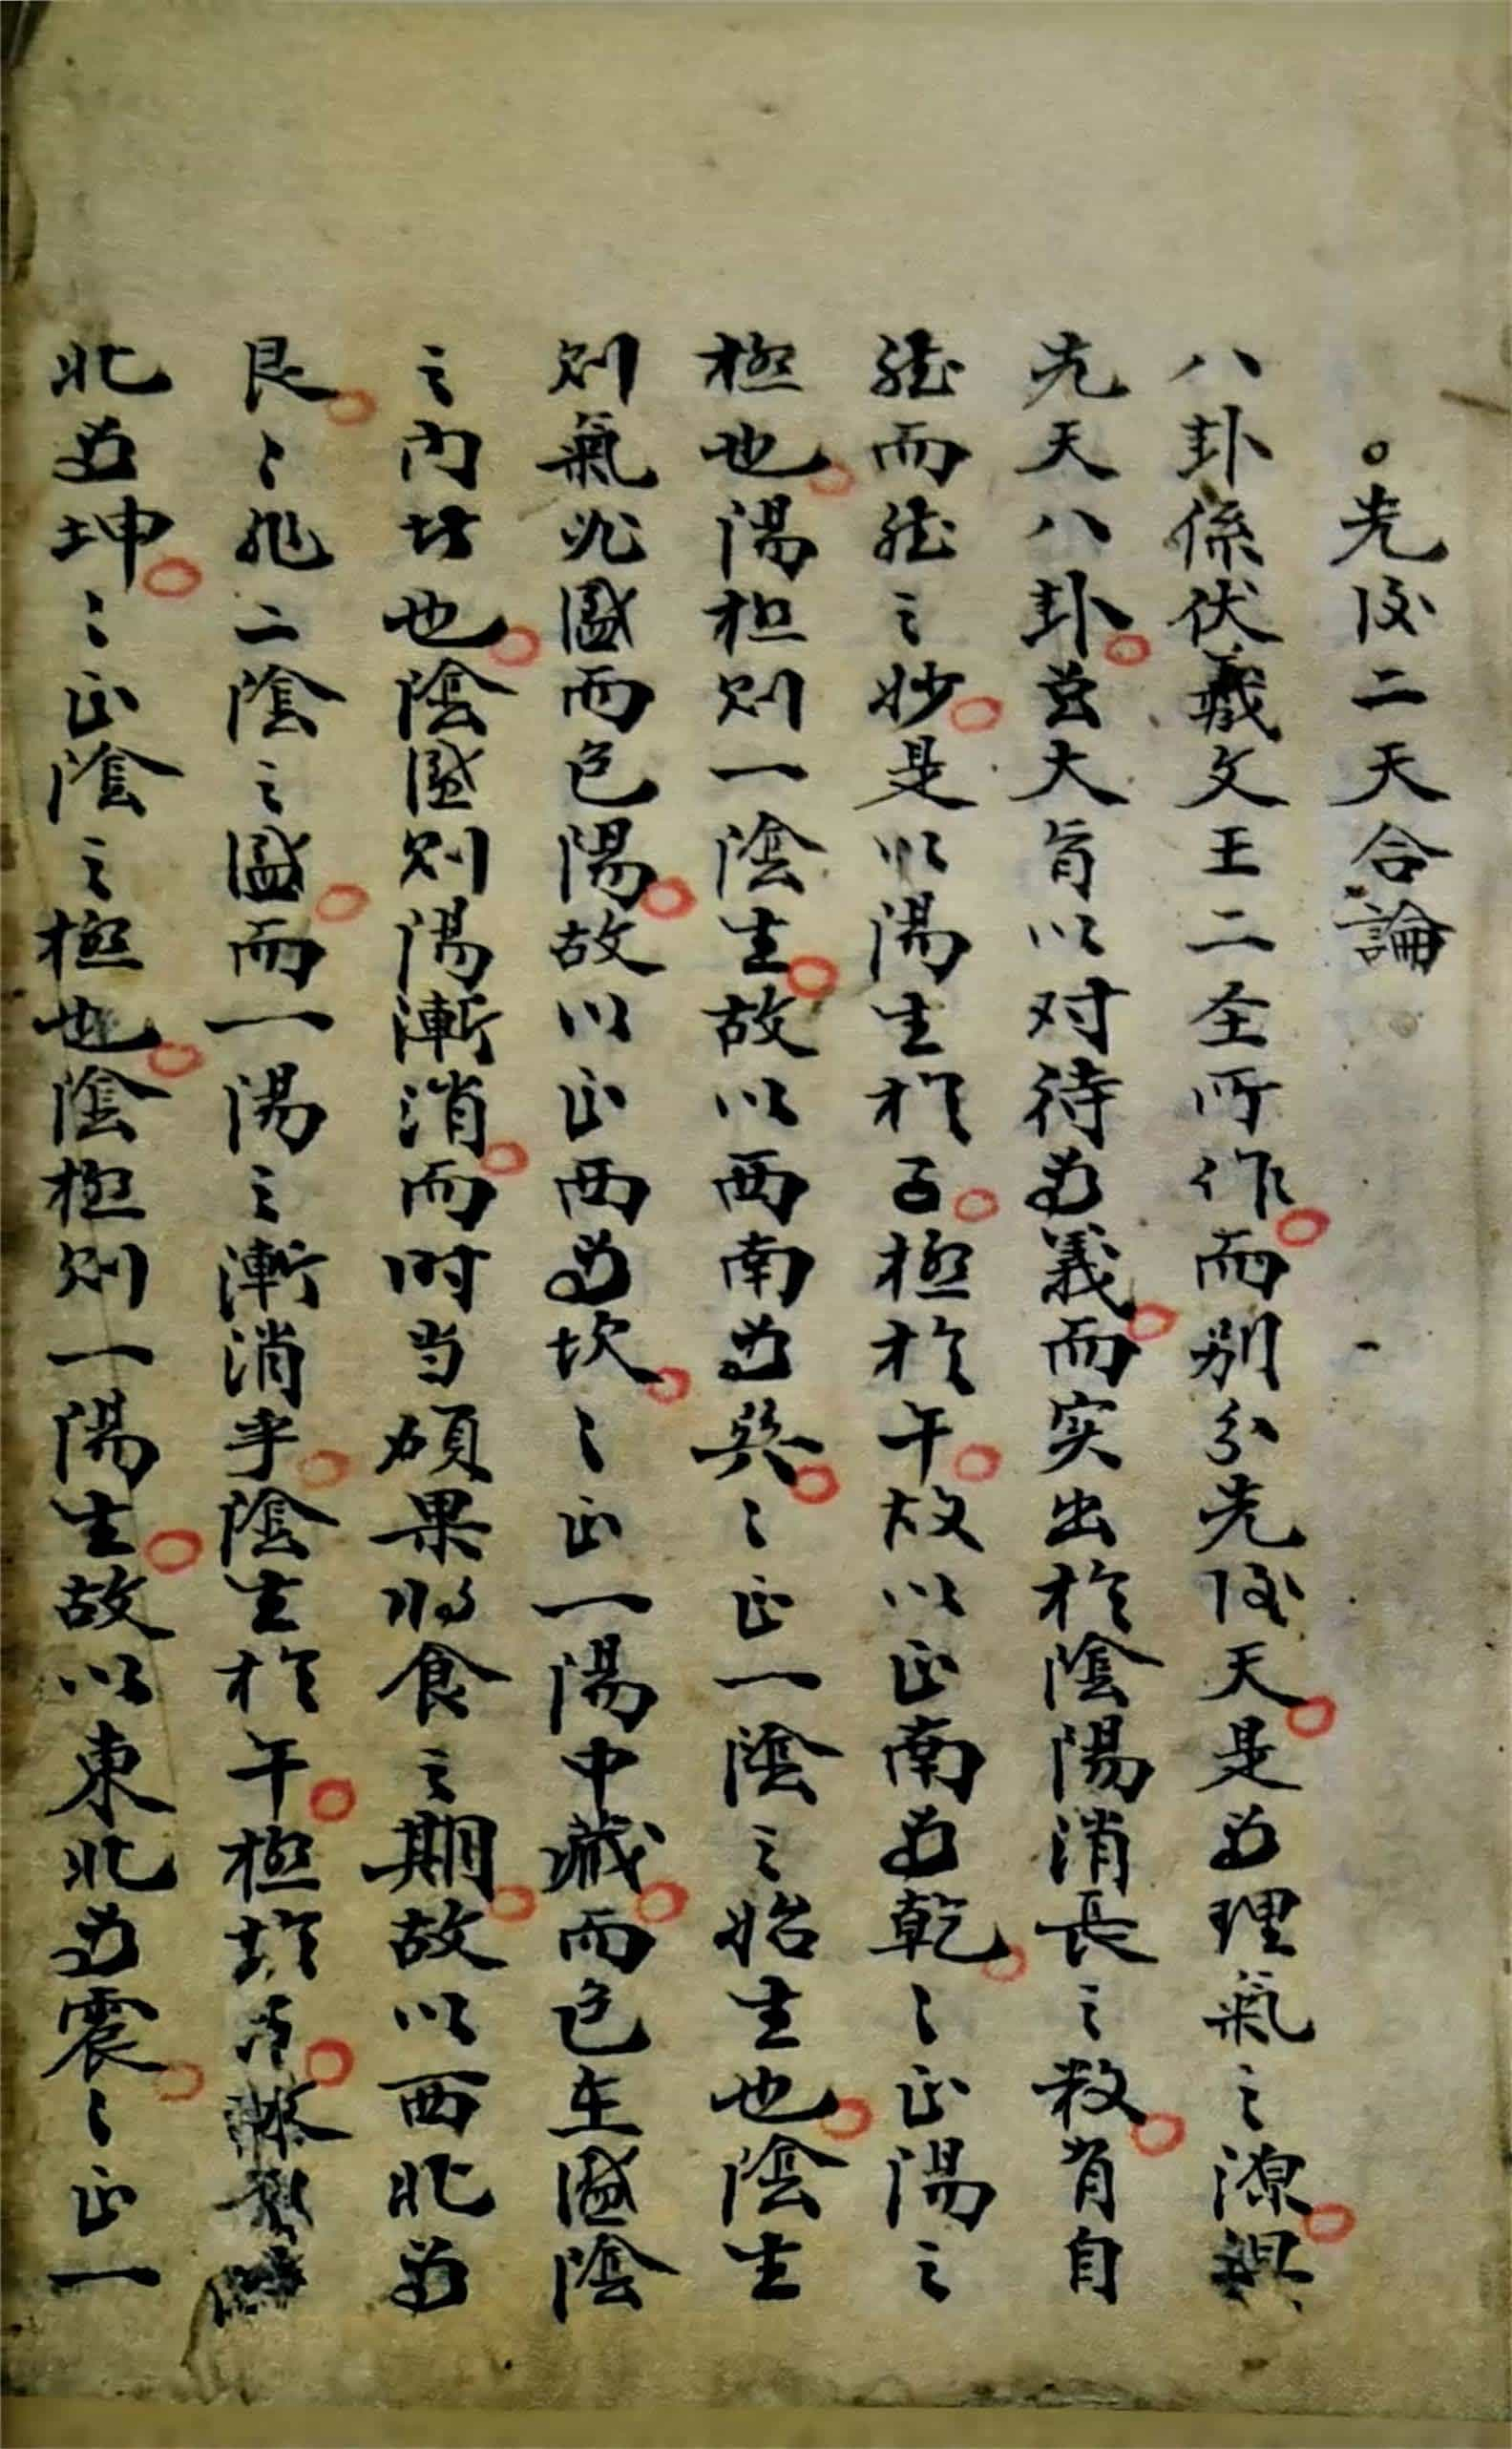 ○先后二天合論
八卦係伏羲文王二圣所作而别分先后天是為理氣之源
先天八卦其大旨以对待為義而实出於陰陽消長之数皆自
然而然之妙是以陽生於子極於午故以正南為乾〻正陽之
極也陽極则一陰生故以西南為巽〻正一陰之始生也陰生
则氣必盛而包陽故以正西為坎〻正一陽中藏而包在盛陰
之内故也陰盛则陽漸消而时当碩果将食之期故以西北為
艮〻非二陰之盛而一陽之漸消乎陰生於午極於
北為坤〻正陰之極也陰極则一陽生故以東北為震〻正一